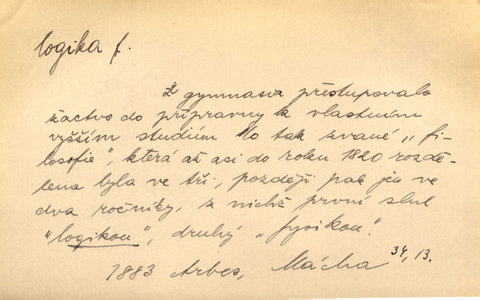 logika f.
Z gymnasia přestupovalo
žactvo do přípravny k vlastním
vyšším studiím do tak zvané „fi-
losofie", která až asi do roku 1820 rozdě-
lena byla ve tři, později pak jen ve
dva ročníky, z nichž první slul
"logikou", druhý „fysikou".
1883 Arbes, Mácha 34, 13.